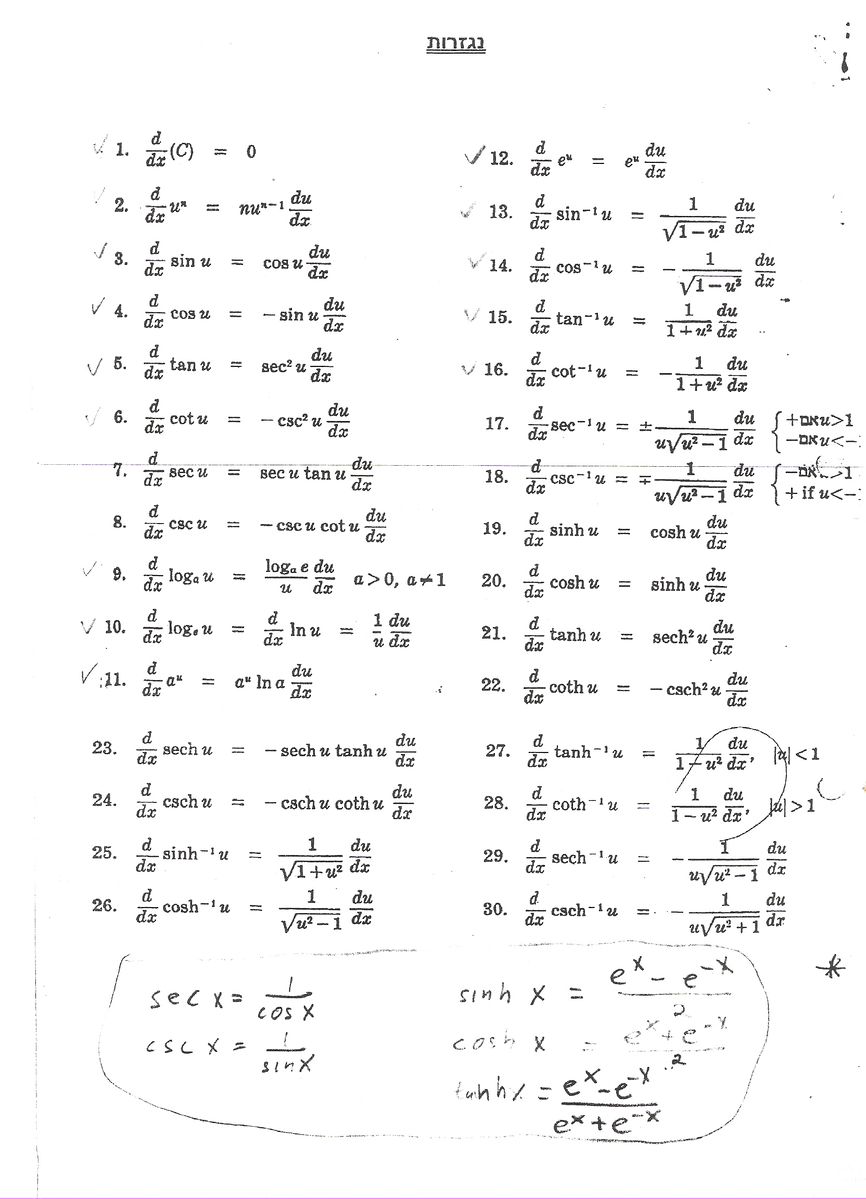 נגזרות
✓ 1. d/dx (C) = 0
2. d/dx uⁿ = nuⁿ⁻¹ du/dx
✓ 3. d/dx sin u = cos u du/dx
✓ 4. d/dx cos u = − sin u du/dx
✓ 5. d/dx tan u = sec² u du/dx
✓ 6. d/dx cot u = − csc² u du/dx
7. d/dx sec u = sec u tan u du/dx
8. d/dx csc u = − csc u cot u du/dx
✓ 9. d/dx logₐ u = logₐ e/u du/dx a > 0, a ≠ 1
✓ 10. d/dx logₑ u = d/dx ln u = 1/u du/dx
✓ 11. d/dx aᵘ = aᵘ ln a du/dx
✓ 12. d/dx eᵘ = eᵘ du/dx
✓ 13. d/dx sin⁻¹ u = 1/√(1−u²) du/dx
✓ 14. d/dx cos⁻¹ u = − 1/√(1−u²) du/dx
✓ 15. d/dx tan⁻¹ u = 1/(1+u²) du/dx
✓ 16. d/dx cot⁻¹ u = − 1/(1+u²) du/dx
17. d/dx sec⁻¹ u = ± 1/(u√(u²−1)) du/dx { +אם u>1
−אם u<−
18. d/dx csc⁻¹ u = ∓ 1/(u√(u²−1)) du/dx { −אם >1
+ if u<−
19. d/dx sinh u = cosh u du/dx
20. d/dx cosh u = sinh u du/dx
21. d/dx tanh u = sech² u du/dx
22. d/dx coth u = − csch² u du/dx
23. d/dx sech u = − sech u tanh u du/dx
24. d/dx csch u = − csch u coth u du/dx
25. d/dx sinh⁻¹ u = 1/√(1+u²) du/dx
26. d/dx cosh⁻¹ u = 1/√(u²−1) du/dx
27. d/dx tanh⁻¹ u = 1/(1−u²) du/dx, |u| < 1
28. d/dx coth⁻¹ u = 1/(1−u²) du/dx, |u| > 1
29. d/dx sech⁻¹ u = − 1/(u√(u²−1)) du/dx
30. d/dx csch⁻¹ u = − 1/(u√(u²+1)) du/dx
*
sec x = 1/cos x
csc x = 1/sin x
sinh x = (eˣ − e⁻ˣ)/2
cosh x = (eˣ + e⁻ˣ)/2
tanh x = (eˣ − e⁻ˣ)/(eˣ + e⁻ˣ)